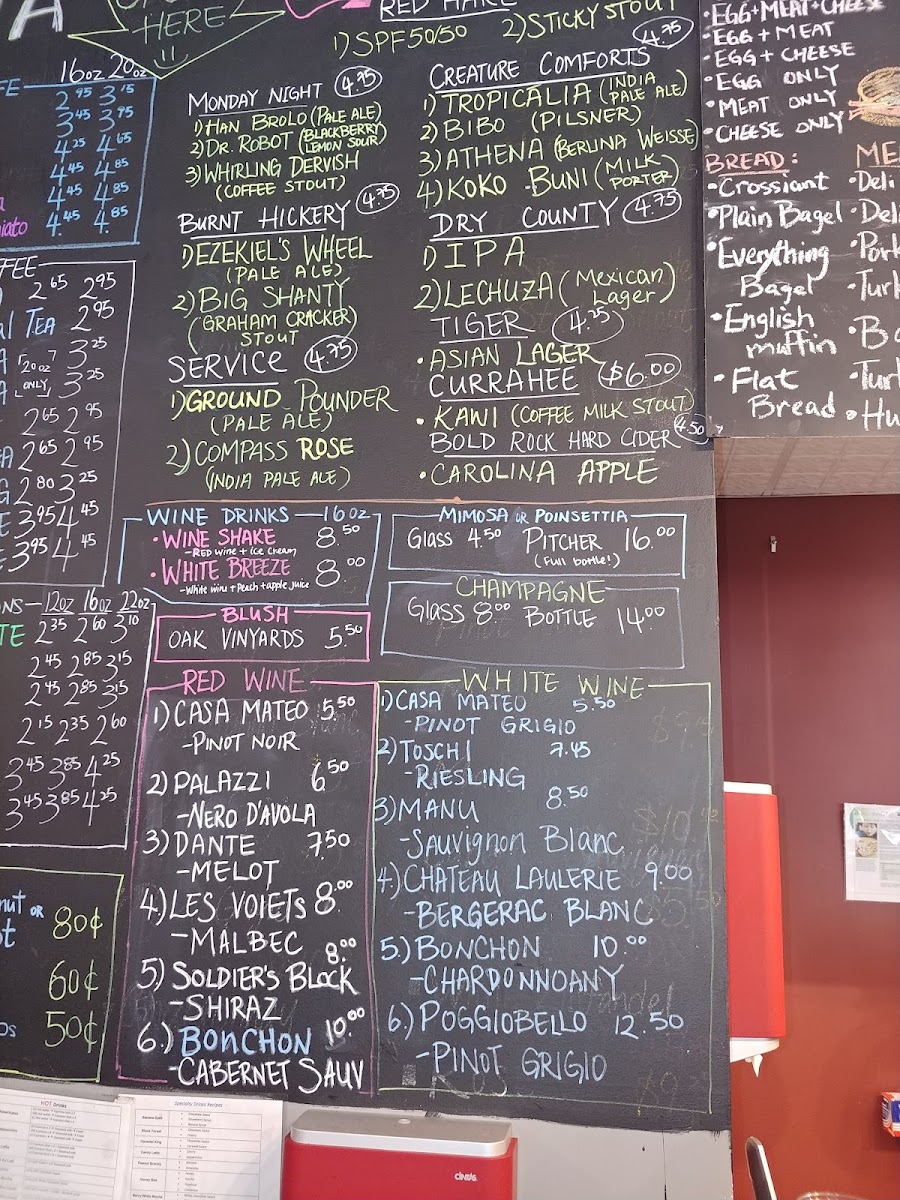 HERE
RED HARE
1) SPF 50/50 2) STICKY STOUT
4.75
MONDAY NIGHT 4.75
1) HAN BROLO (PALE ALE)
2) DR. ROBOT (BLACKBERRY LEMON SOUR)
3) WHIRLING DERVISH
(COFFEE STOUT)
BURNT HICKERY 4.75
1) EZEKIEL'S WHEEL
(PALE ALE)
2) BIG SHANTY
(GRAHAM CRACKER)
STOUT
SERVICE 4.75
1) GROUND POUNDER
(PALE ALE)
2) COMPASS ROSE
(INDIA PALE ALE)
CREATURE COMFORTS
1) TROPICALIA (INDIA PALE ALE)
2) BIBO (PILSNER)
3) ATHENA (BERLINA WEISSE)
4) KOKO BUNI (MILK PORTER)
DRY COUNTY 4.75
1) IPA
2) LECHUZA (Mexican Lager)
TIGER 4.25
• ASIAN LAGER
CURRAHEE $6.00
• KAWI (COFFEE MILK STOUT)
BOLD ROCK HARD CIDER 4.50
• CAROLINA APPLE
• EGG+MEAT+CHEESE
• EGG + MEAT
• EGG + CHEESE
• EGG ONLY
• MEAT ONLY
• CHEESE ONLY
BREAD:
• Crossiant
• Plain Bagel
• Everything
Bagel
• English
muffin
• Flat
Bread
16oz 20oz
2.95 3.15
3.45 3.95
4.25 4.65
4.45 4.85
4.45 4.85
4.45 4.85
2.65 2.95
TEA 2.95
20oz ONLY 3.25
3.25
2.65 2.95
2.65 2.95
2.80 3.25
3.95 4.45
3.95 4.45
12oz 16oz 22oz
2.35 2.60 3.10
2.45 2.85 3.15
2.45 2.85 3.15
2.15 2.35 2.60
3.45 3.85 4.25
3.45 3.85 4.25
OR
80¢
60¢
50¢
WINE DRINKS 16oz
• WINE SHAKE 8.50
-RED wine + ice cream
• WHITE BREEZE 8.00
-White wine + Peach + apple juice
MIMOSA OR POINSETTIA
Glass 4.50 PITCHER 16.00
(Full bottle!)
BLUSH
OAK VINYARDS 5.50
CHAMPAGNE
GLASS 8.00 BOTTLE 14.00
RED WINE
1) CASA MATEO 5.50
-PINOT NOIR
2) PALAZZI 6.50
-NERO D'AVOLA
3) DANTE 7.50
-MELOT
4.) LES VOIETS 8.00
-MALBEC
5) SOLDIER'S BLOCK 8.00
-SHIRAZ
6.) BONCHON 10.00
-CABERNET SAUV
WHITE WINE
1) CASA MATEO 5.50
-PINOT GRIGIO
2) TOSCHI 7.45
-RIESLING
3) MANU 8.50
-Sauvignon Blanc
4.) CHATEAU LAULERIE 9.00
-BERGERAC BLANC
5.) BONCHON 10.00
-CHARDONNOANY
6.) POGGIOBELLO 12.50
-PINOT GRIGIO
HOT Drinks
Specialty Drinks Recipes
CINTAS